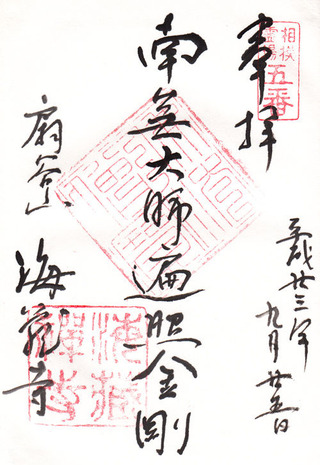 相模
霊場
五番
奉拝
平成廿三年
九月廿五日
南無大師遍照金剛
扇谷山
海蔵寺
海蔵
禅寺